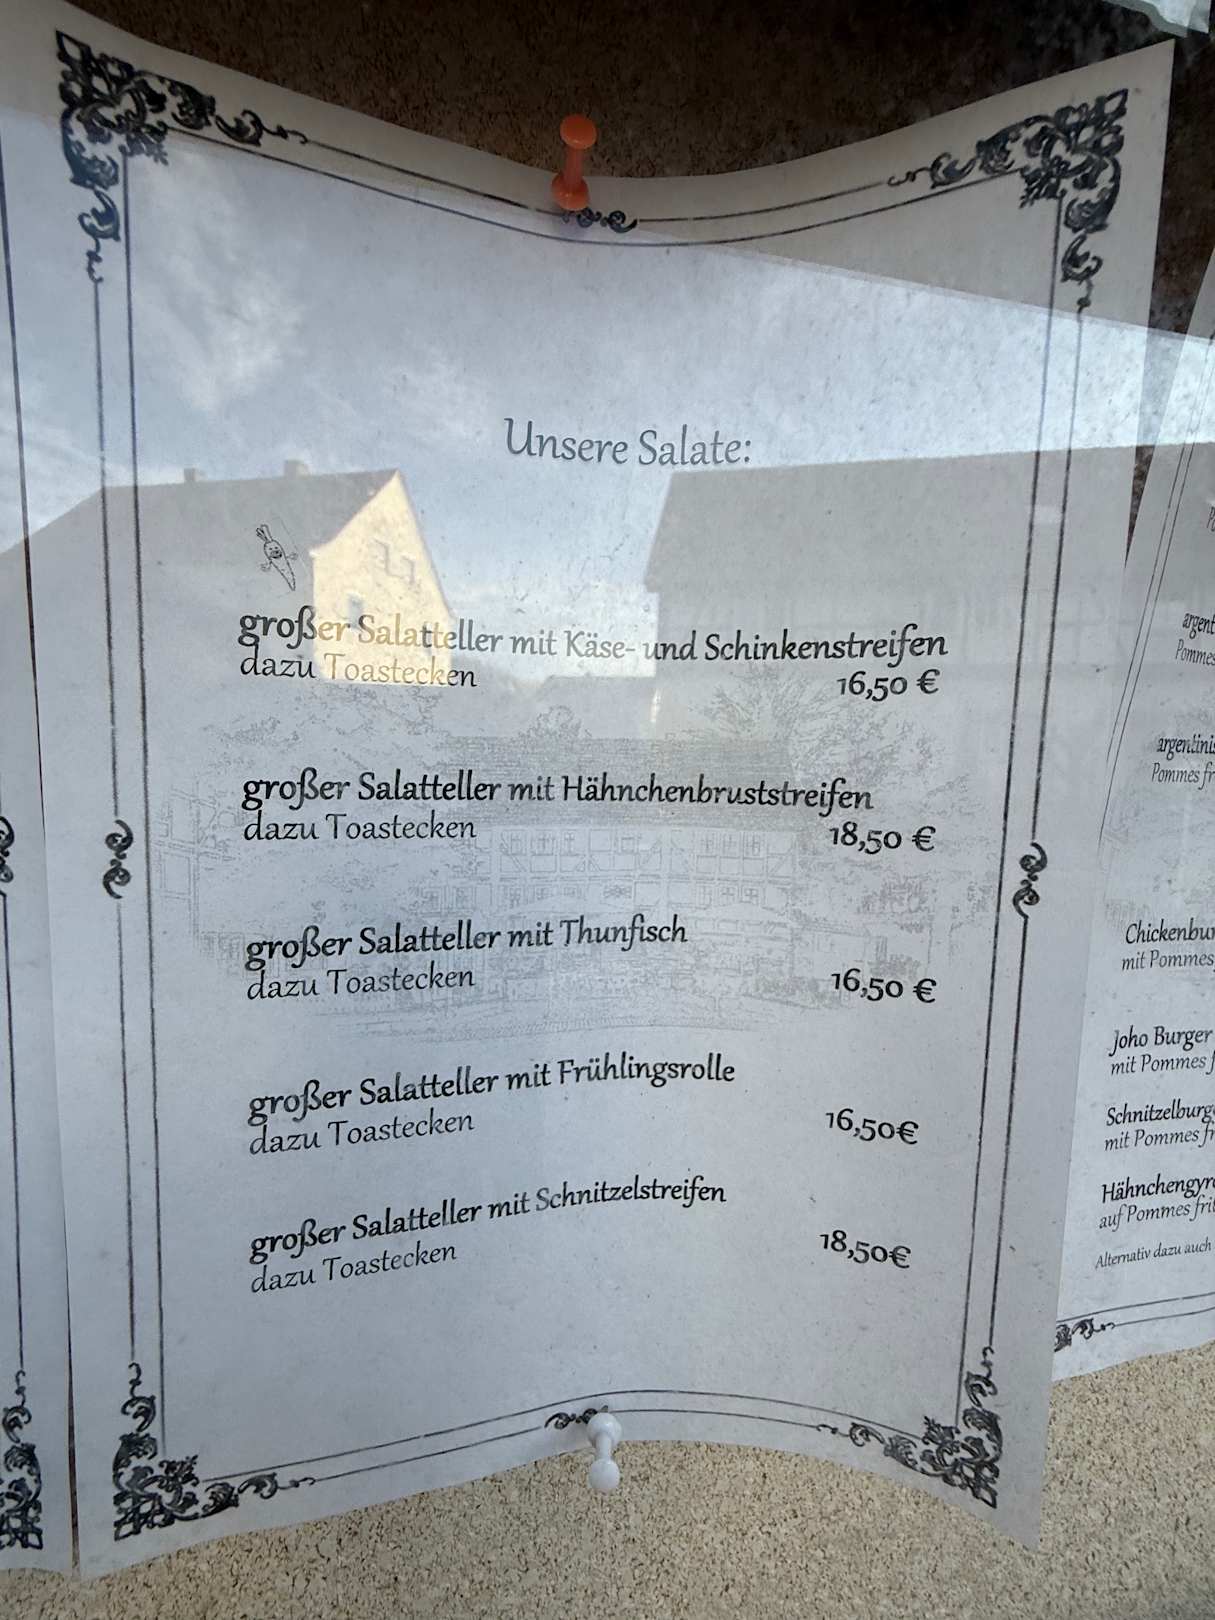 Unsere Salate:
großer Salatteller mit Käse- und Schinkenstreifen
dazu Toastecken
16,50 €
großer Salatteller mit Hähnchenbruststreifen
dazu Toastecken
18,50 €
großer Salatteller mit Thunfisch
dazu Toastecken
16,50 €
großer Salatteller mit Frühlingsrolle
dazu Toastecken
16,50€
großer Salatteller mit Schnitzelstreifen
dazu Toastecken
18,50€
Pommes
Pommes
Chickenbur
mit Pommes
Joho Burger
mit Pommes
Schnitzelburg
mit Pommes
Hähnchengyr
auf Pommes
Alternativ dazu auch